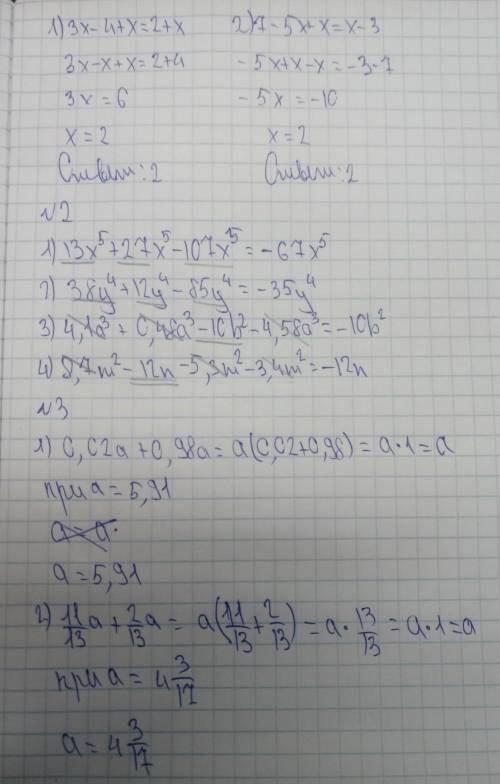 1) 3x-4+x=2+x 2) 7-5x+x=x-3
3x-x+x=2+4 -5x+x-x=-3-7
3x=6 -5x=-10
x=2 x=2
:2 :2
№2
1) 13x⁵+27x⁵-107x⁵=-67x⁵
2) 38y⁴+12y⁴-85y⁴=-35y⁴
3) 4,1a³+0,48a³-10b²-4,58a³=-10b²
4) 8,7m²-12n-5,3m²-3,4m²=-12n
№3
1) 0,02a+0,98a=a(0,02+0,98)=a·1=a
при a=5,91
a=a·
a=5,91
2) 11/13a+2/13a=a(11/13+2/13)=a·13/13=a·1=a
при a=4 3/17
a=4 3/17